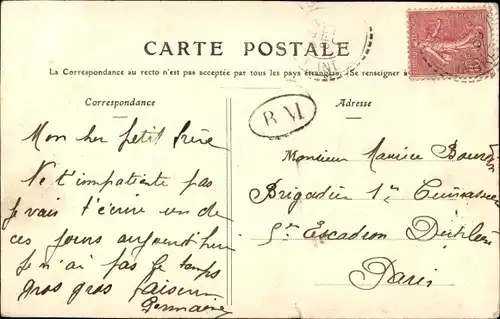 CARTE POSTALE
La Correspondance au recto n'est pas acceptée par tous les pays étrangers. (Se renseigner à
Correspondance
Adresse
B M
Mon her petit frère
Ne t'impatiente pas
je vais t'écrire un de
ces jours aujourd'hui
je n'ai pas le temps
gros gros
Germaine
Monsieur Maurice
Brigadier 1er Cuirassier
5e Escadron
Paris